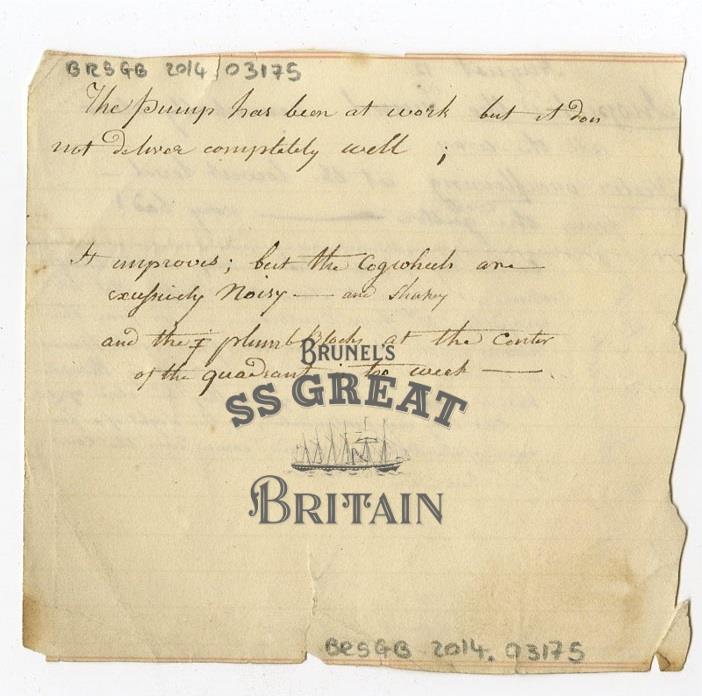 BRSGB 2014.03175
The pump has been at work but it don
not deliver completely well ;
It improves; but the Cogwheels are
excessively Noisy — and shakey
and the plumb Blocks at the Center
of the quadrant is too weak —.
BRUNEL'S
SS GREAT
BRITAIN
BRSGB 2014.03175